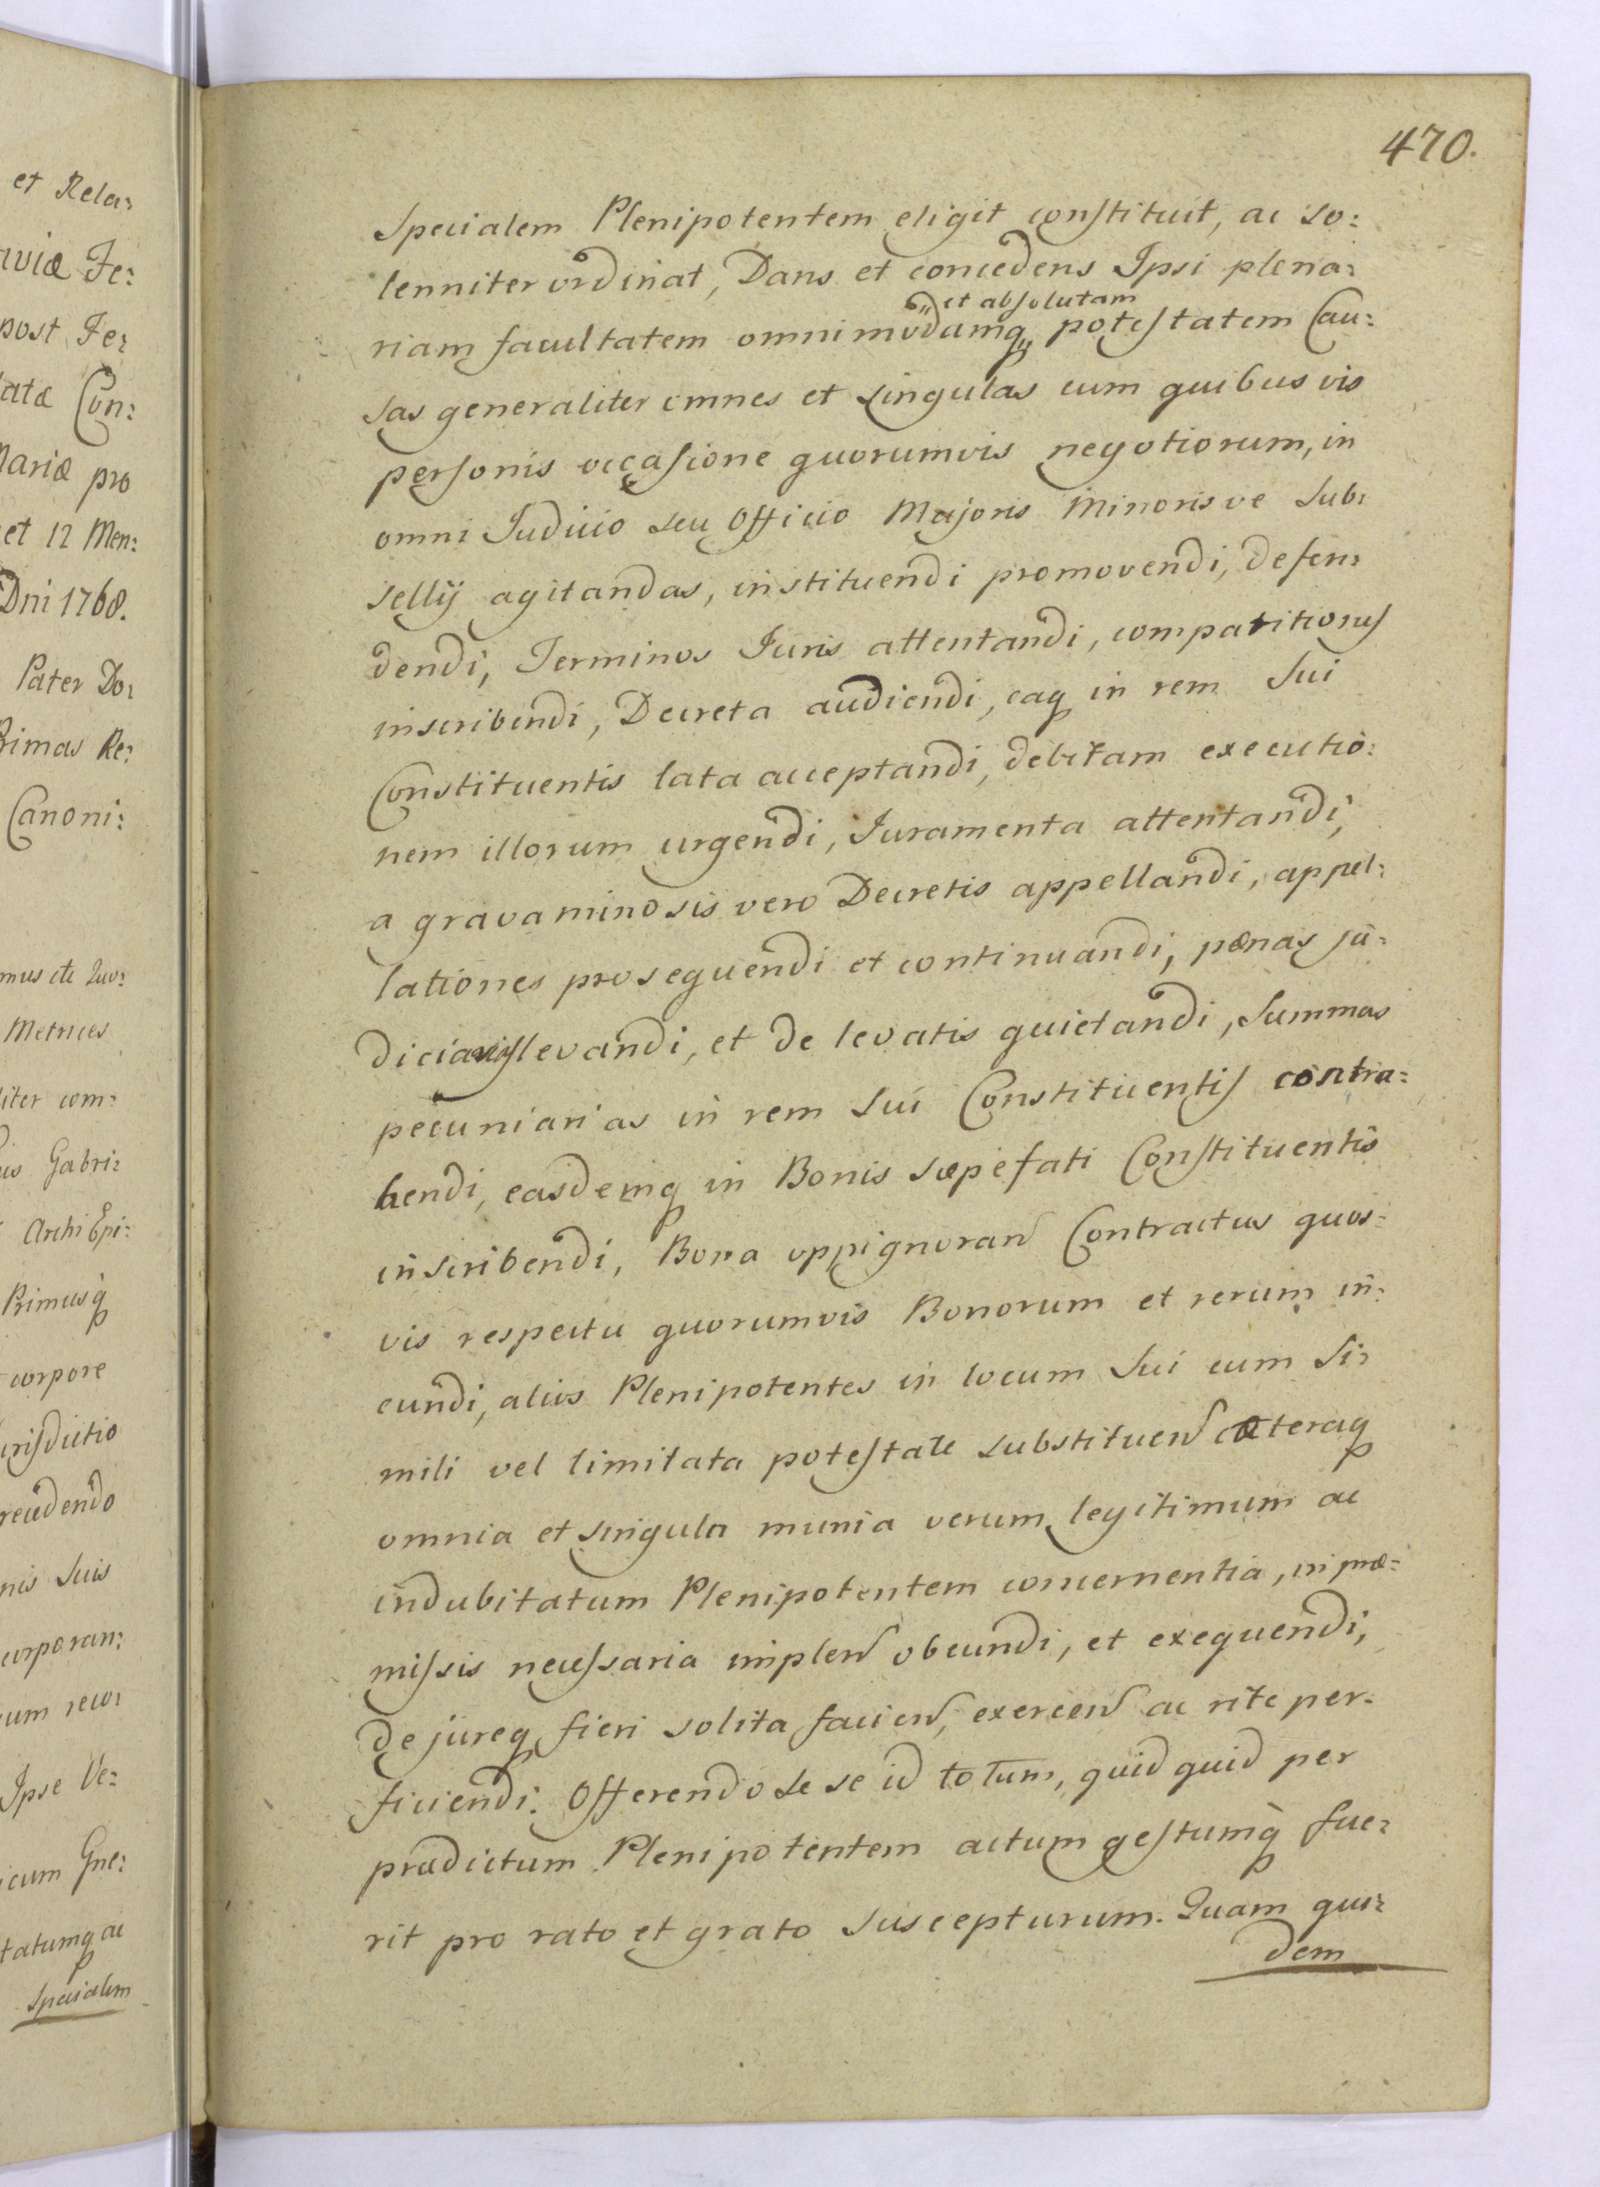 470.
specialem Plenipotentem eligit constituit, ac so:
lenniter ordinat, Dans et concedens Ipsi plena:
et absolutam
riam facultatem omnimodamq potestatem Cau:
sas generaliter omnes et singulas cum quibus vis
personis occasione quorumvis negotiorum, in
omni Judicio seu Officio Majoris Minorisve Sub:
sellij agitandas, instituendi promovendi, defen:
dendi, Terminos Juris attentandi, comparitiones
inscribendi, Decreta audiendi, eaq in rem Sui
Constituentis lata acceptandi, debitam executio:
nem illorum urgendi, Juramenta attentandi,
a gravaminosis vero Decretis appellandi, appel:
lationes prosequendi et continuandi, pænas ju:
diciarias levandi, et de levatis quietandi, Summas
pecuniarias in rem Sui Constituentis contra:
hendi, easdemq in Bonis sæpefati Constituentis
inscribendi, Bona oppignoran Contractus quos:
vis respectu quorumvis Bonorum et rerum in:
eundi, alius Plenipotentes in locum Sui cum Si:
mili vel limitata potestate substituen cæteraq
omnia et singula munia verum legitimum ac
indubitatum Plenipotentem concernentia, in præ:
missis necessaria implen obeundi, et exequendi,
de jureq fieri solita facien, exercen ac rite per:
ficiendi. Offerendo se se id totum, quid quid per
prædictum Plenipotentem actum gestumq fue:
rit pro rato et grato suscepturum. Quam qui:
dem
et Rela:
aviæ Fe:
post Fe:
Con:
Mariæ pro
et 12 Men:
Dni 1768.
Pater Do:
Primas Re:
Canoni:
Metrices
liter com:
Gabri:
Archi Epi:
Primusq
corpore
urisdictio
recedendo
nis suis
corporan:
cum reco:
Ipse Ve:
icum Gne:
tatumq ac
specialem